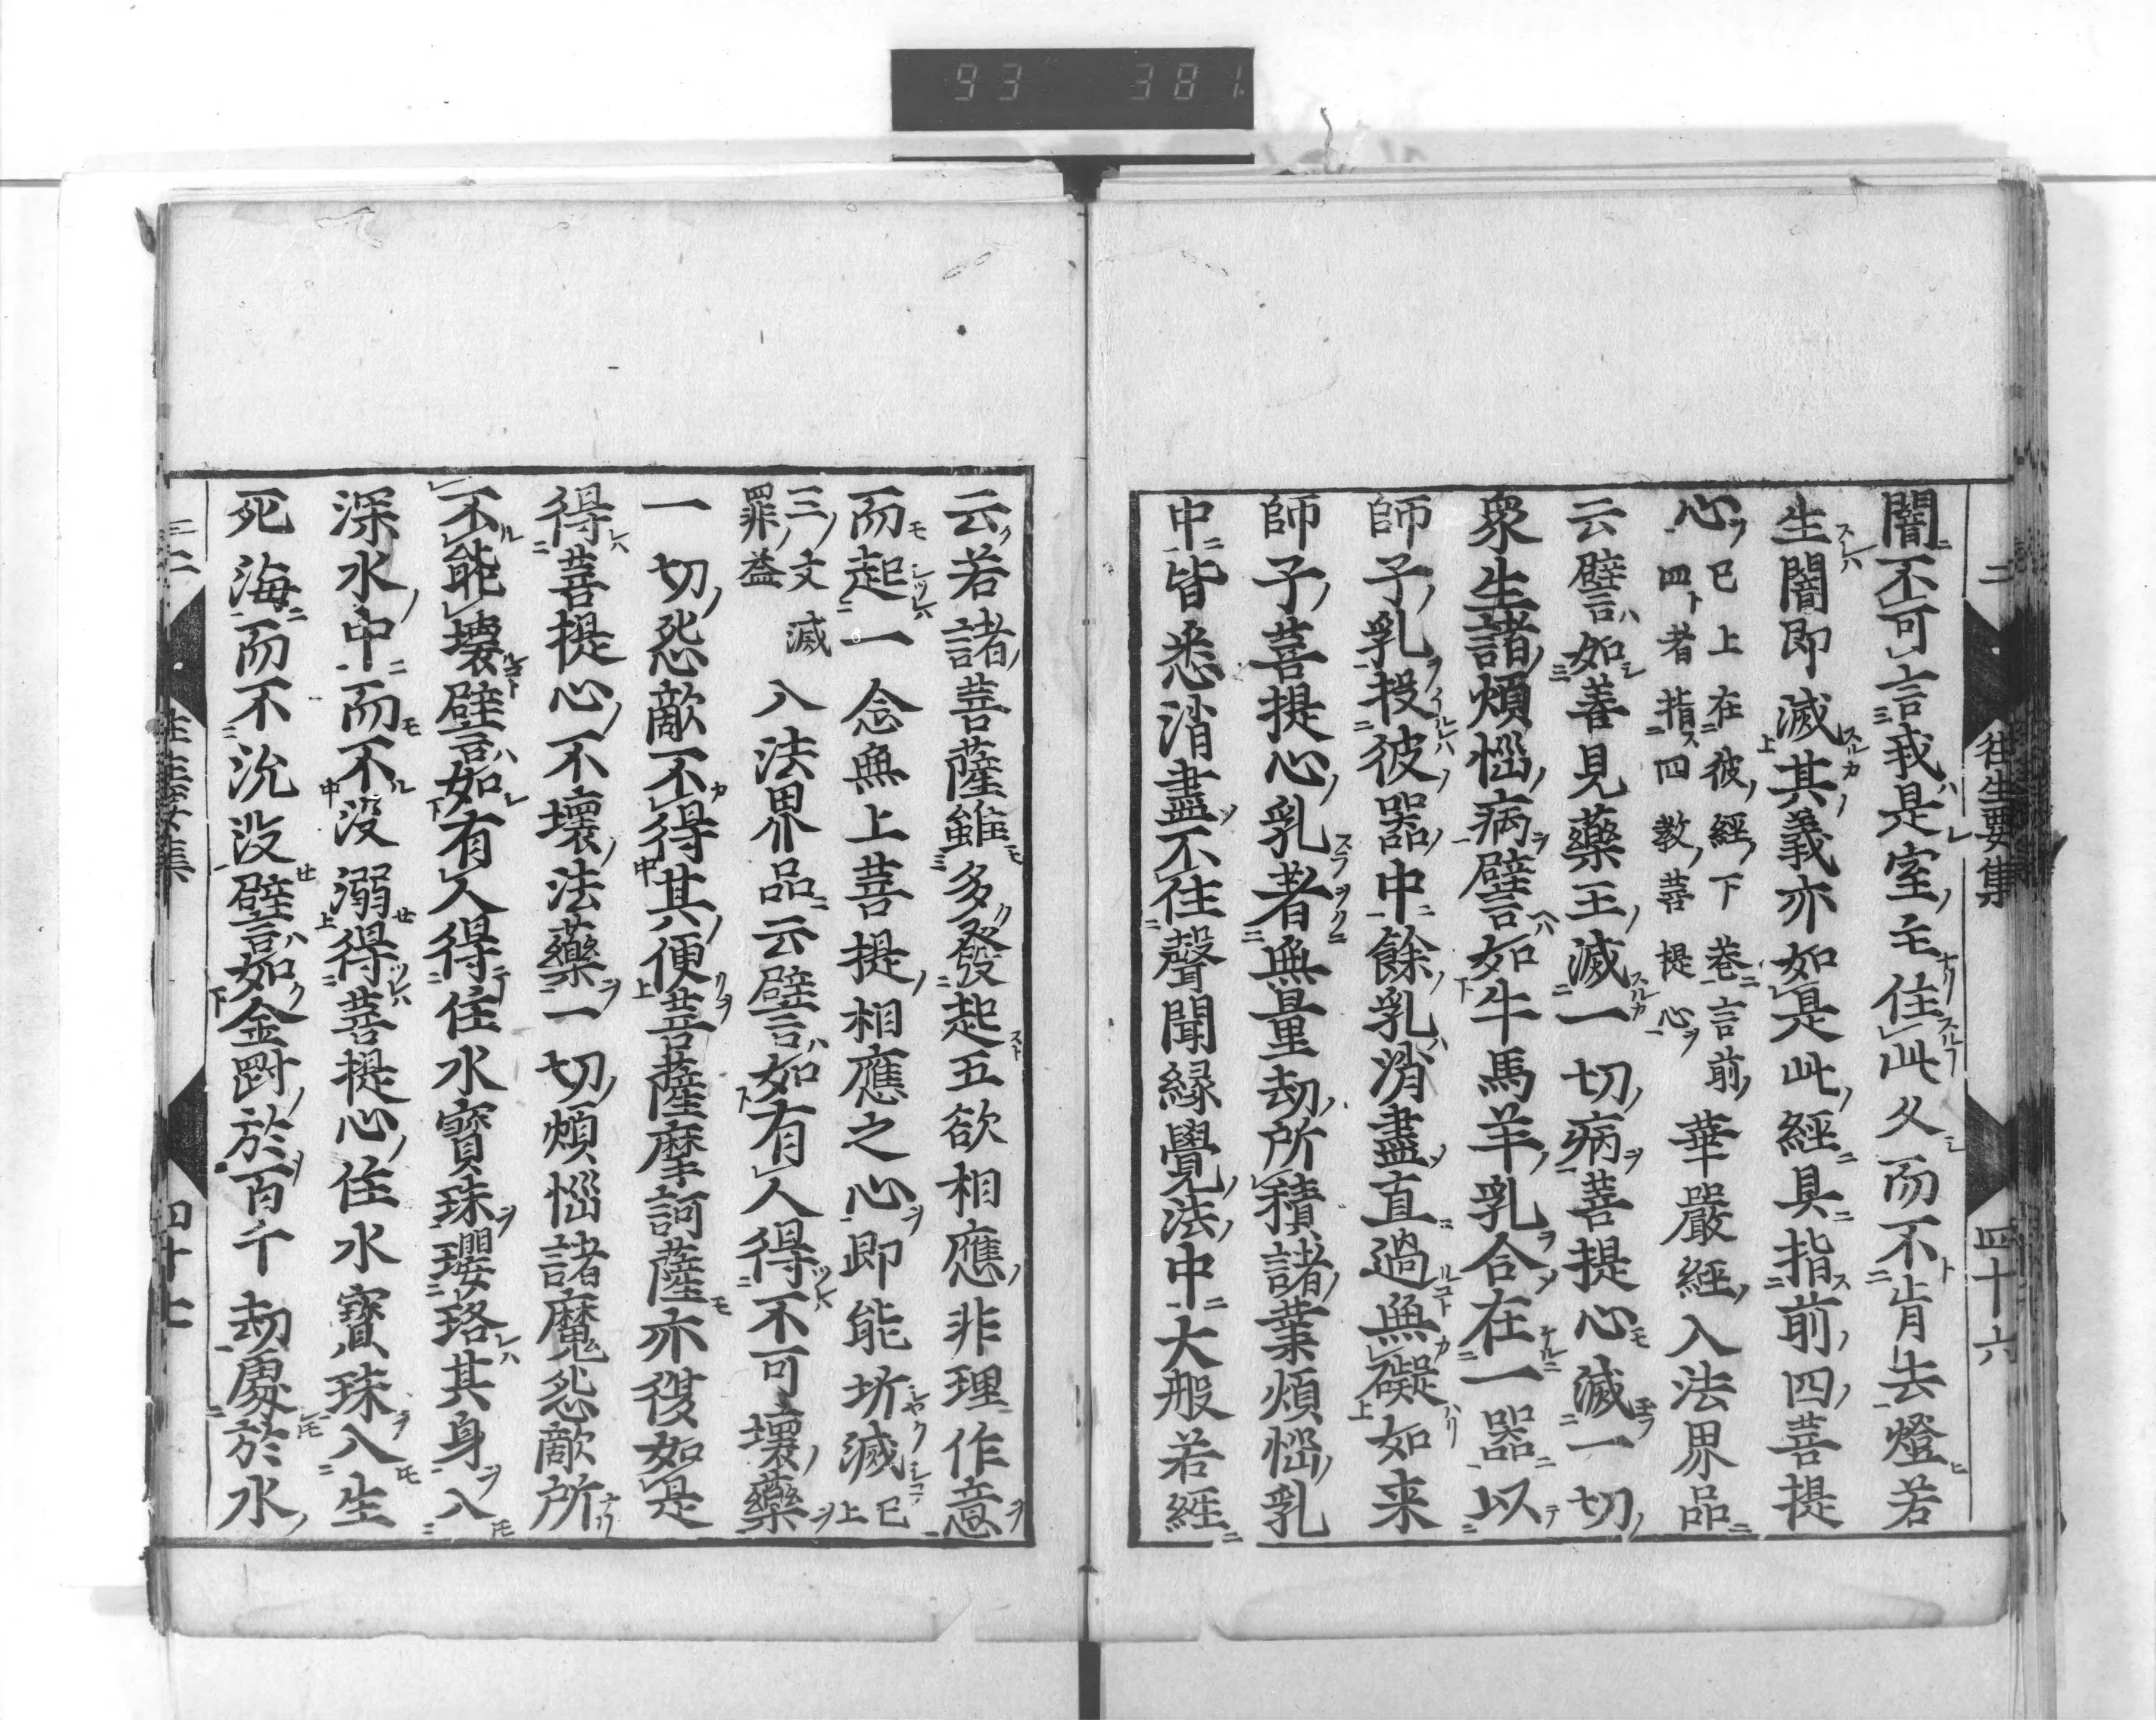 93 381
二 往生要集 四十六
闇不可言我是室主住此久而不肯去燈若
生闇即滅其義亦如是此經具指前四菩提
心已上在彼經下卷言前
四者指四教菩提心
華嚴經入法界品
云譬如善見藥王滅一切病菩提心滅一切
衆生諸煩惱病譬如牛馬羊乳合在一器以
師子乳投彼器中餘乳消盡直過無礙如来
師子菩提心乳者無量劫所積諸業煩惱乳
中皆悉消盡不住聲聞縁覺法中大般若經
云若諸菩薩雖多發起五欲相應非理作意
而起一念無上菩提相應之心即能折滅已上
三文滅
罪益
入法界品云譬如有人得不可壞藥
一切怨敵不得其便菩薩摩訶薩亦復如是
得菩提心不壞法藥一切煩惱諸魔怨敵所
不能壞譬如有人得住水寶珠瓔珞其身入
深水中而不没溺得菩提心住水寶珠入生
死海而不沈没譬如金剛於百千劫處於水
二 往生要集 四十七